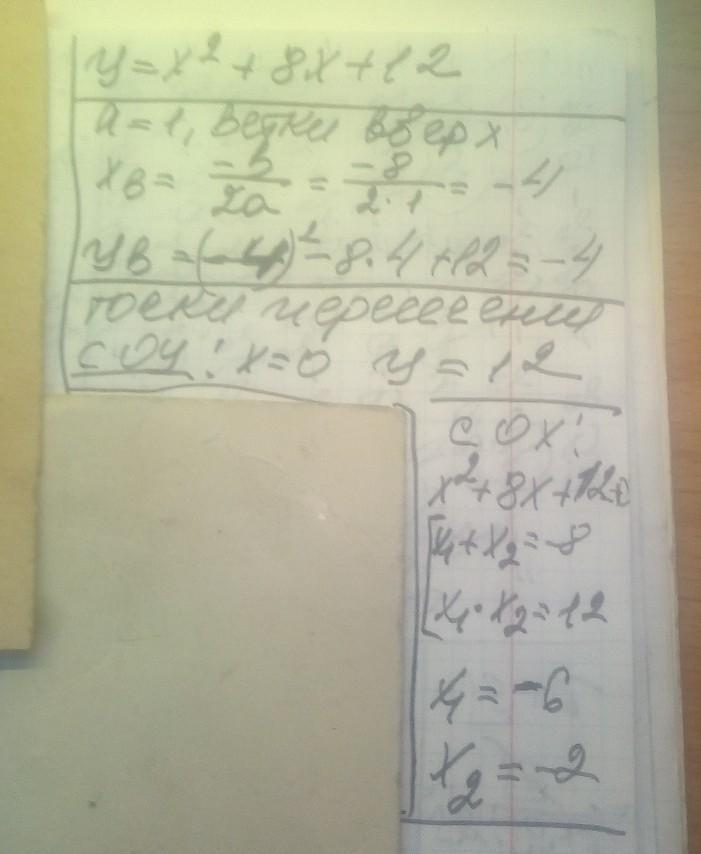 y = x² + 8x + 12
a = 1, ветки вверх
xв = -b/2a = -8/2·1 = -4
yв = (-4)² - 8·4 + 12 = -4
точки пересечения
с ОУ: x = 0 y = 12
с ОХ:
x² + 8x + 12 = 0
x₁ + x₂ = -8
x₁ · x₂ = 12
x₁ = -6
x₂ = -2